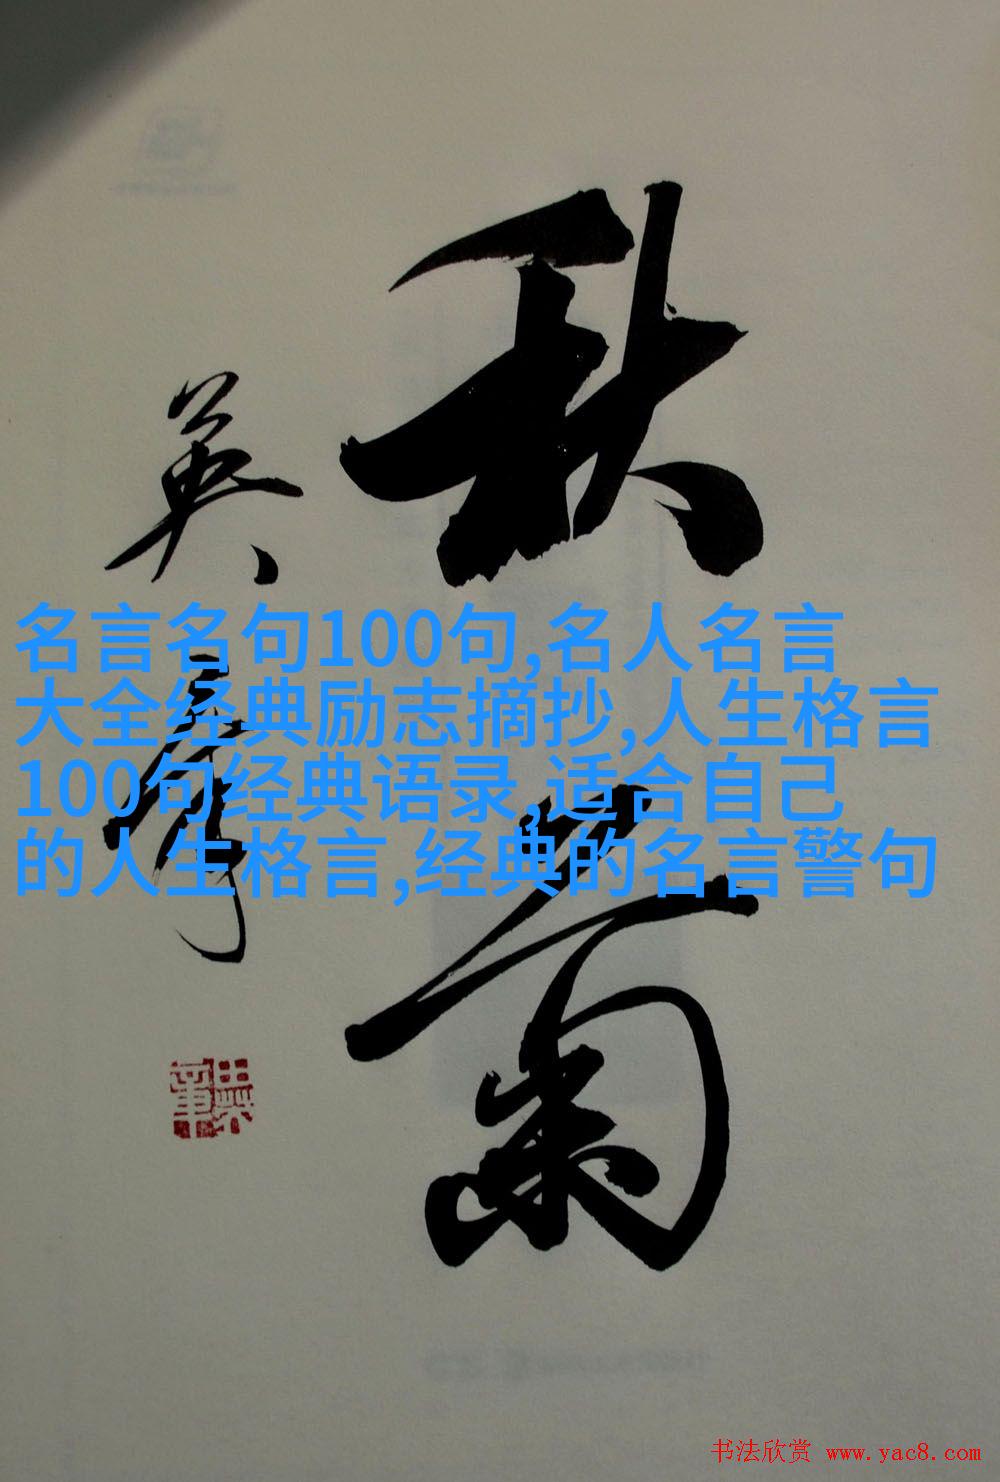 秋菊
英章
名言名句100句,名人名言
大全经典励志摘抄,人生格言
100句经典语录,适合自己
的人生格言,经典的名言警句
书法欣赏 www.yac8.com